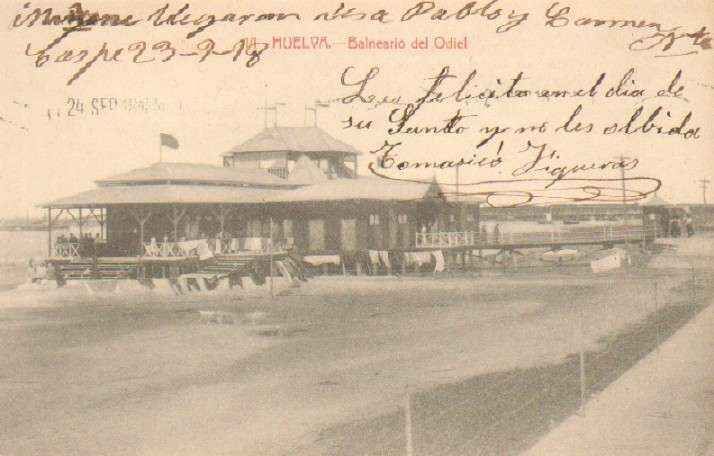 llegaron Pablo y Carmen
Caspe 23-9-18
HUELVA.- Balneario del Odiel
24 SEP
Les felicito en el dia de
su Santo y no les olbida
Tomasico Figueras